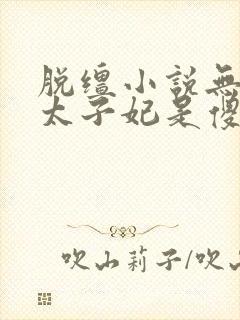 脱缰小说無
太子妃是傻
吹山莉子/吹山